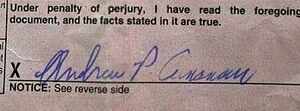 Under penalty of perjury, I have read the foregoing
document, and the facts stated in it are true.
X Andrew P
NOTICE: See reverse side